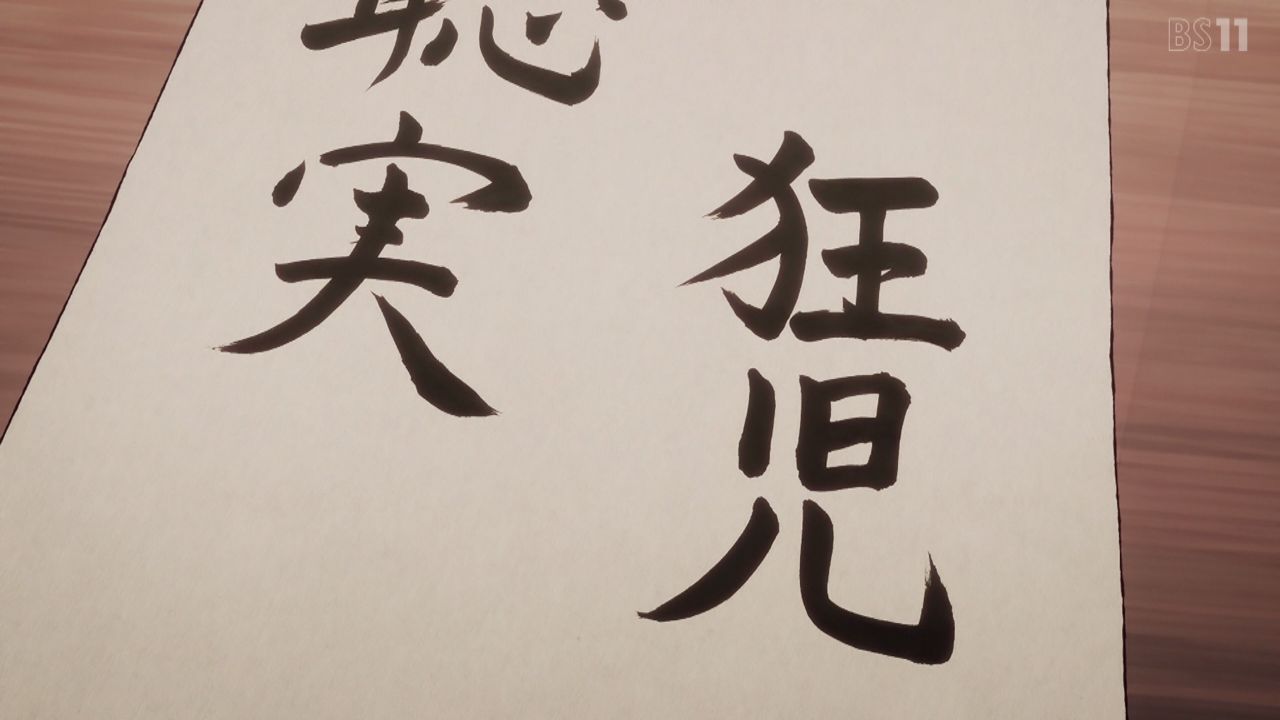 狂児
聡実
BS11